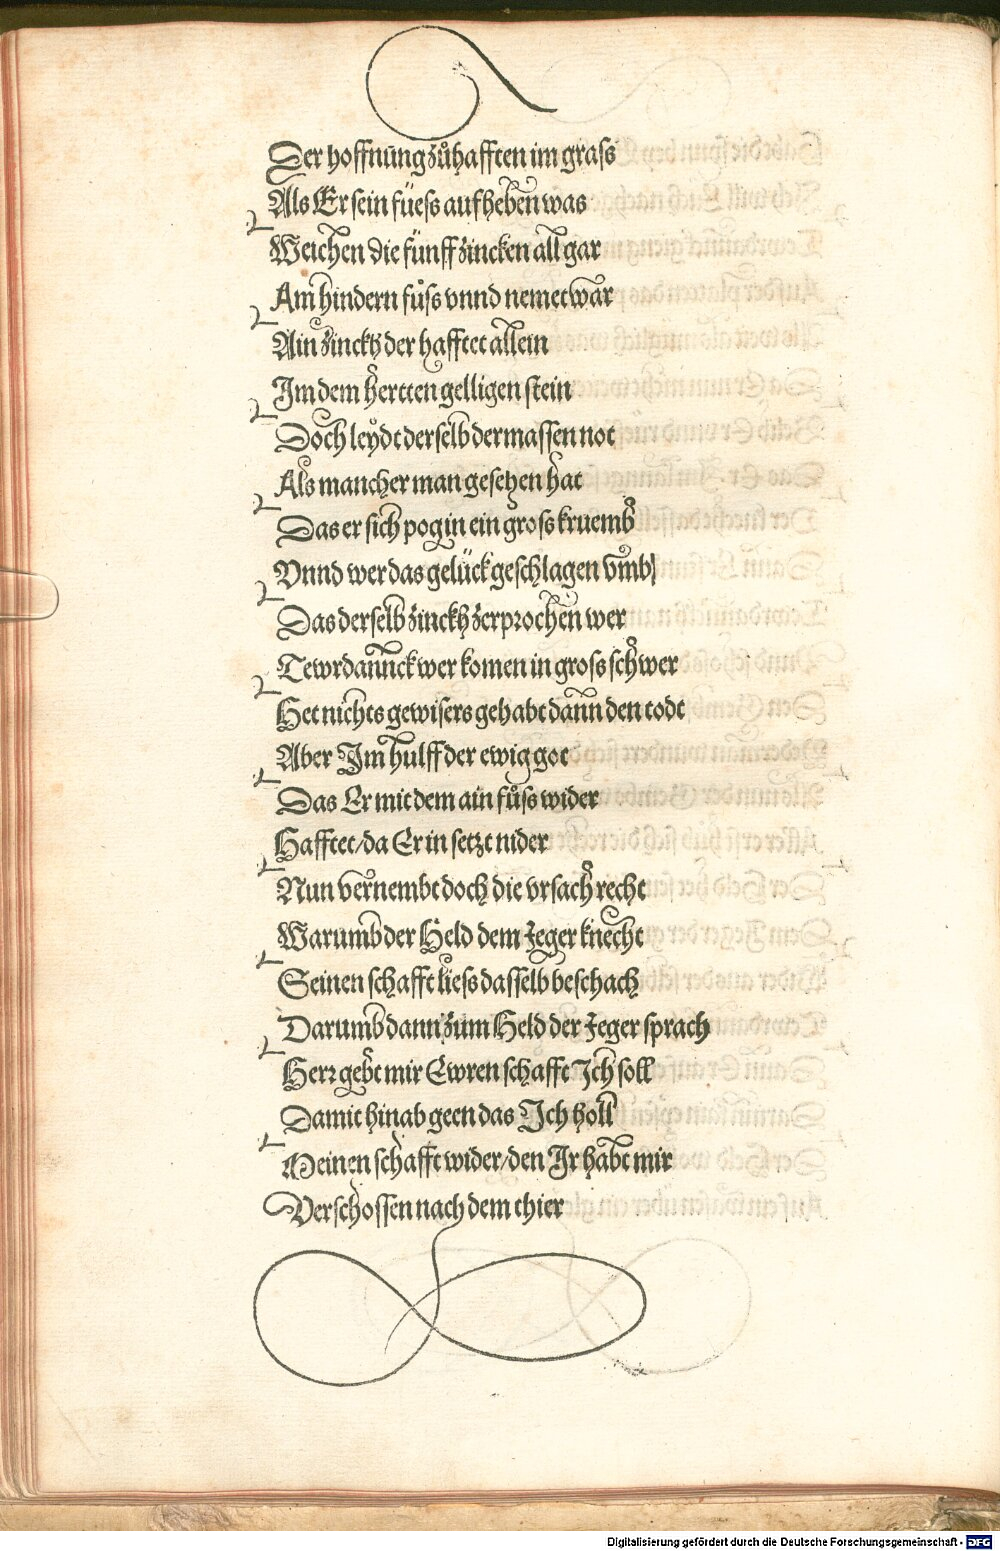 Der hoffnung zuͦhafften im grass
Als Er sein füess aufheben was
Weichen die fünff zincken all gar
Am hindern fuͦss vnnd nemet war
Ain zinckh der hafftet allein
Im dem hertten gelligen stein
Doch leydt derselb dermassen not
Als mancher man gesehen hat
Das er sich pog in ein gross kruemb
Vnnd wer das gelück geschlagen vmb
Das derselb zinckh zerprochen wer
Tewrdannck wer komen in gross schwer
Het nichts gewisers gehabt dann den todt
Aber Im hulff der ewig got
Das Er mit dem ain fuͦss wider
Hafftet/da Er in setzt nider
Nun vernembt doch die vrsach recht
Warumb der Held dem Jeger knecht
Seinen schafft liess dasselb beschach
Darumb dann zum Held der Jeger sprach
Herr gebt mir Ewren schafft Ich soll
Damit hinab geen das Ich holl
Meinen schafft wider/den Ir habt mir
Verschossen nach dem thier
Digitalisierung gefördert durch die Deutsche Forschungsgemeinschaft - DFG